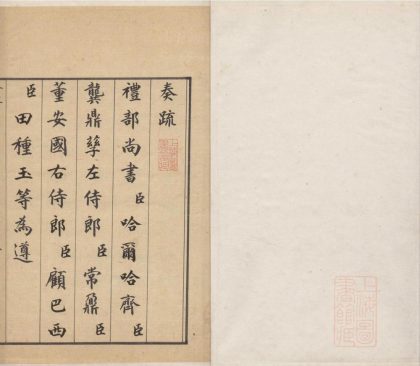 奏疏
禮部尚書臣哈爾哈齊臣
龔鼎孳左侍郎臣常鼐臣
董安國右侍郎臣顧巴西
臣田種玉等為遵